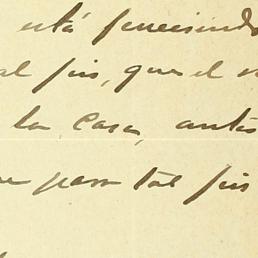 está feneciendo
al fin, que el
la Casa, antes
para tal fin